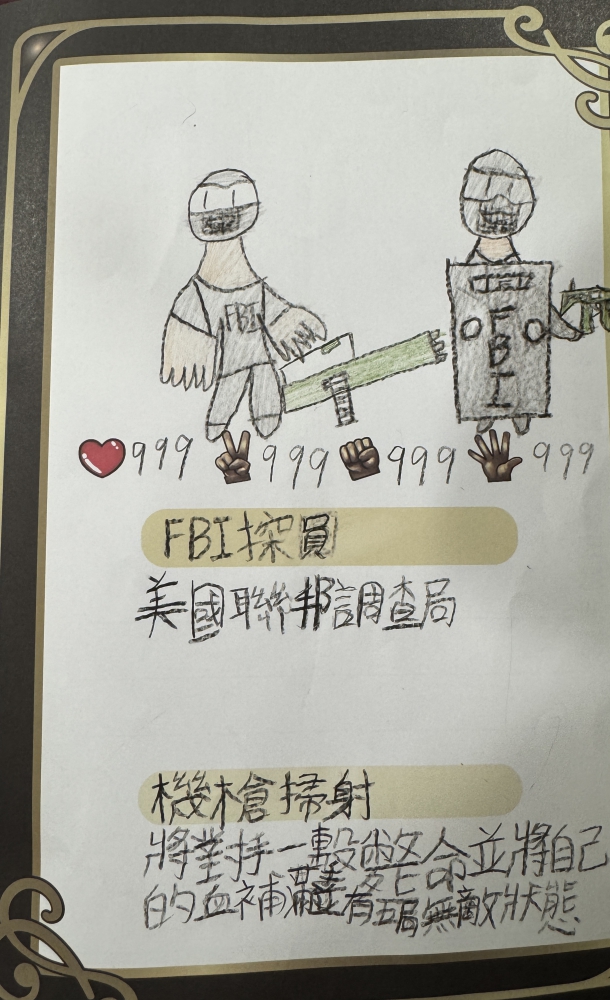 FBI
FBI
999 999 999 999
FBI探員
美國聯邦調查局
機槍掃射
將對手一擊斃命並將自己
的血補滿並有五局無敵狀態